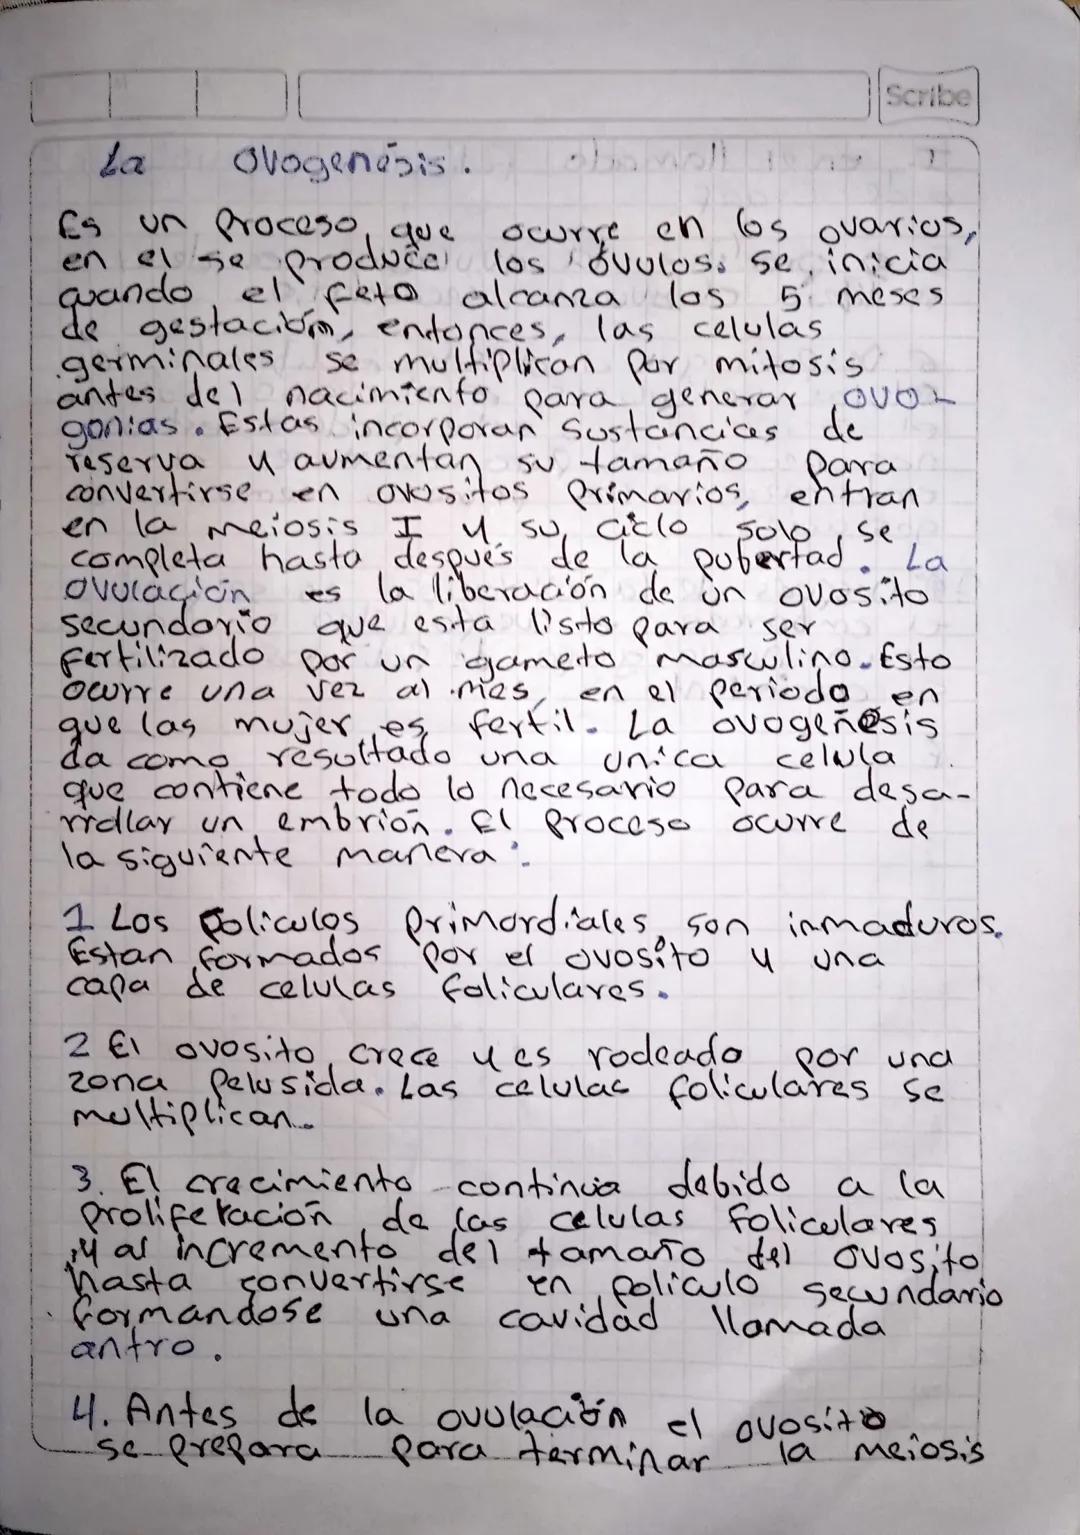 Scribe
La Ovogenésis.
Es un Proceso, que ocurre en los ovarios,
en el se produce los óvulos. se inicia
cuando el feto alcanza los 5 meses
de gestación, entonces, las celulas
germinales se multiplican por mitosis
antes del nacimiento para generar ovo-
gonias. Estas incorporan Sustancias de
reserva y aumentan su tamaño para
convertirse en ovositos Primarios, entran
en la meiosis I y su ciclo solo se
completa hasta después de la pubertad. La
ovulación es la liberación de un ovosito
secundario que esta listo para ser
fertilizado por un gameto masculino. Esto
ocurre una vez al mes, en el periodo en
que las mujer es fertil. La ovogenésis
da como resultado una unica celula
que contiene todo lo necesario para desa-
rrollar un embrión. El Proceso ocurre de
la siguiente manera:
1 Los Foliculos Primordiales, son inmaduros.
Estan formados por el ovosito y una
capa de celulas foliculares.
2 El ovosito crece y es rodeado por una
zona Pelusida. Las celulas foliculares se
multiplican.
3. El crecimiento continua debido a la
proliferación de las celulas foliculares
y al incremento del tamaño del ovosito
hasta convertirse en foliculo secundario
formandose una cavidad llamada
antro.
4. Antes de la ovulación el ovosito
se prepara para terminar la meiosis